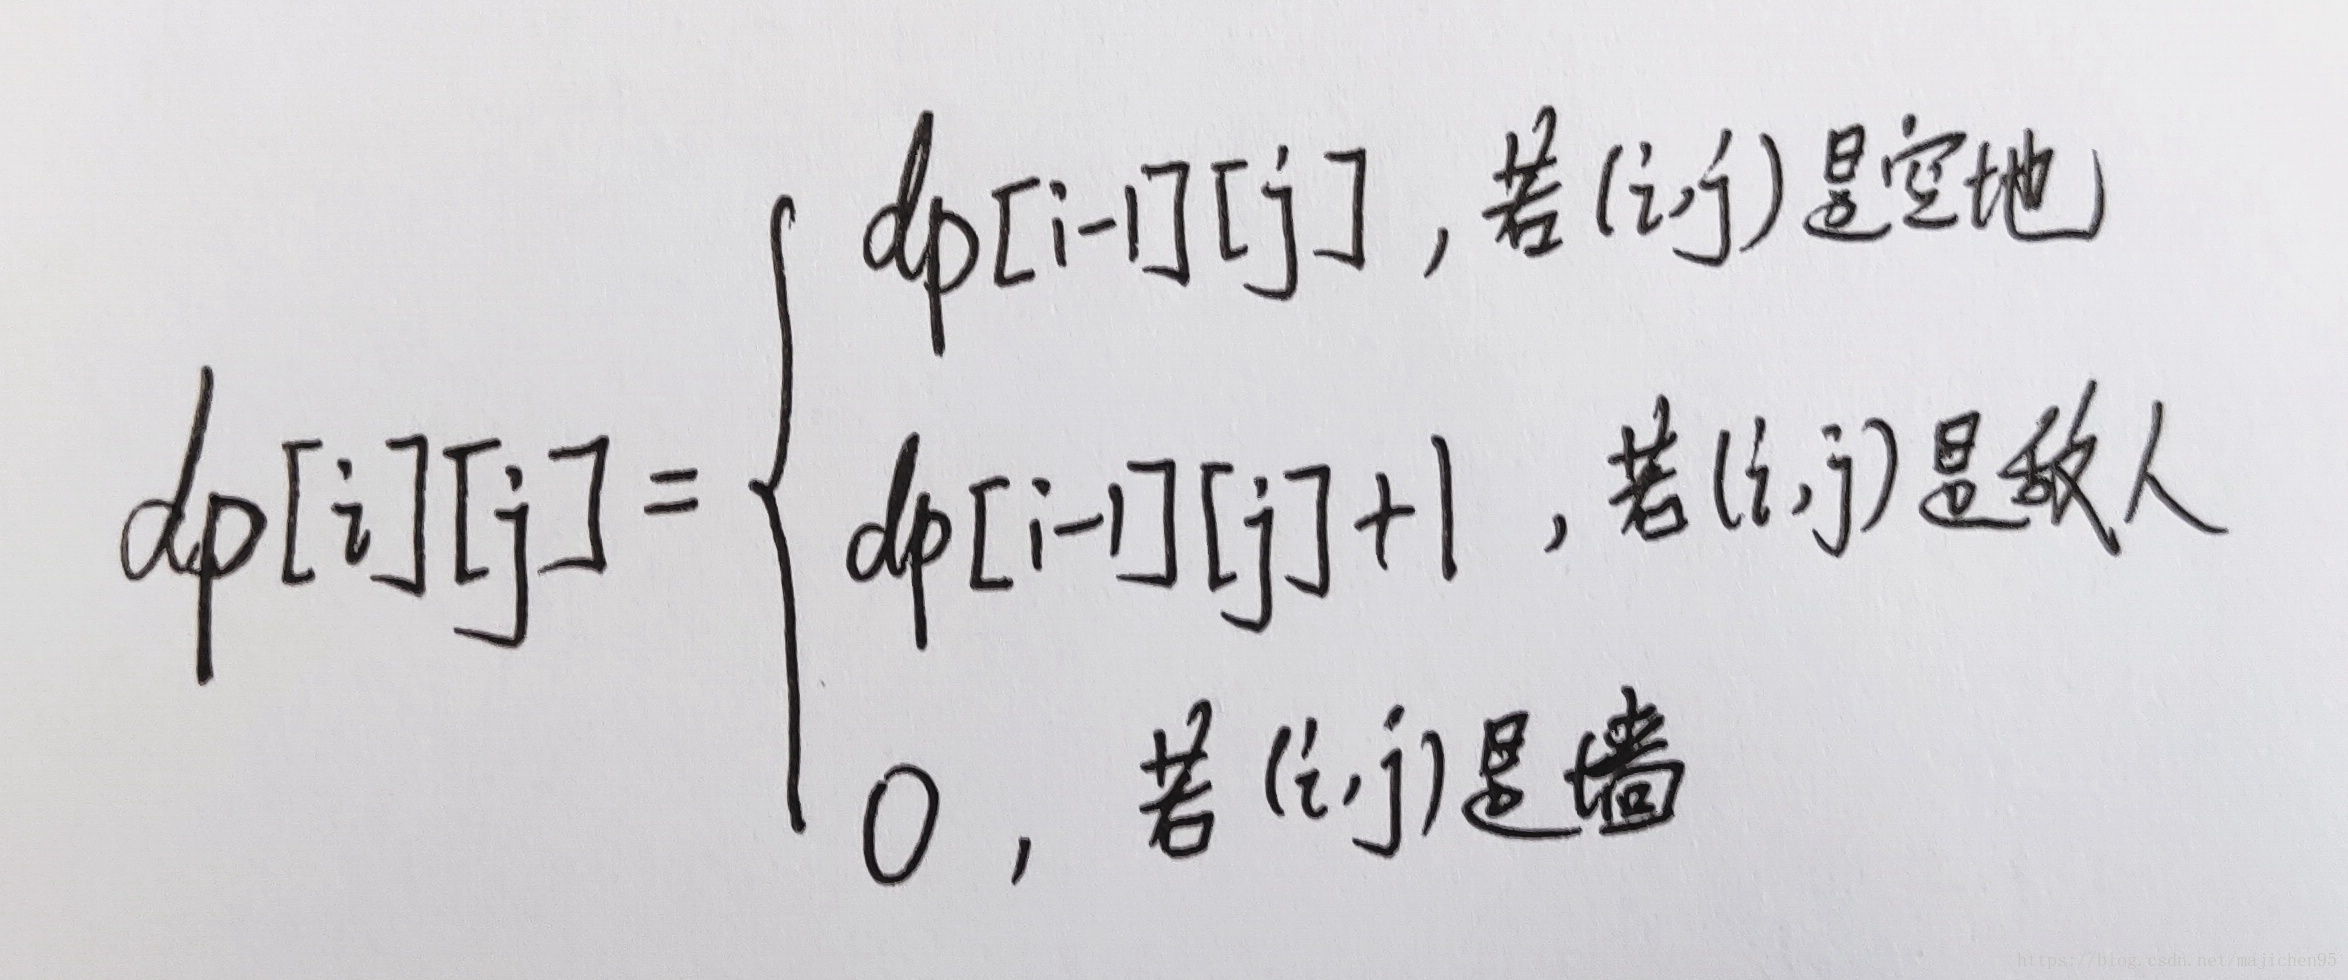 dp[i-1][j], 若(i,j)是空地
dp[i][j]= dp[i-1][j]+1, 若(i,j)是敌人
0, 若(i,j)是墙
https://blog.csdn.net/majichen95